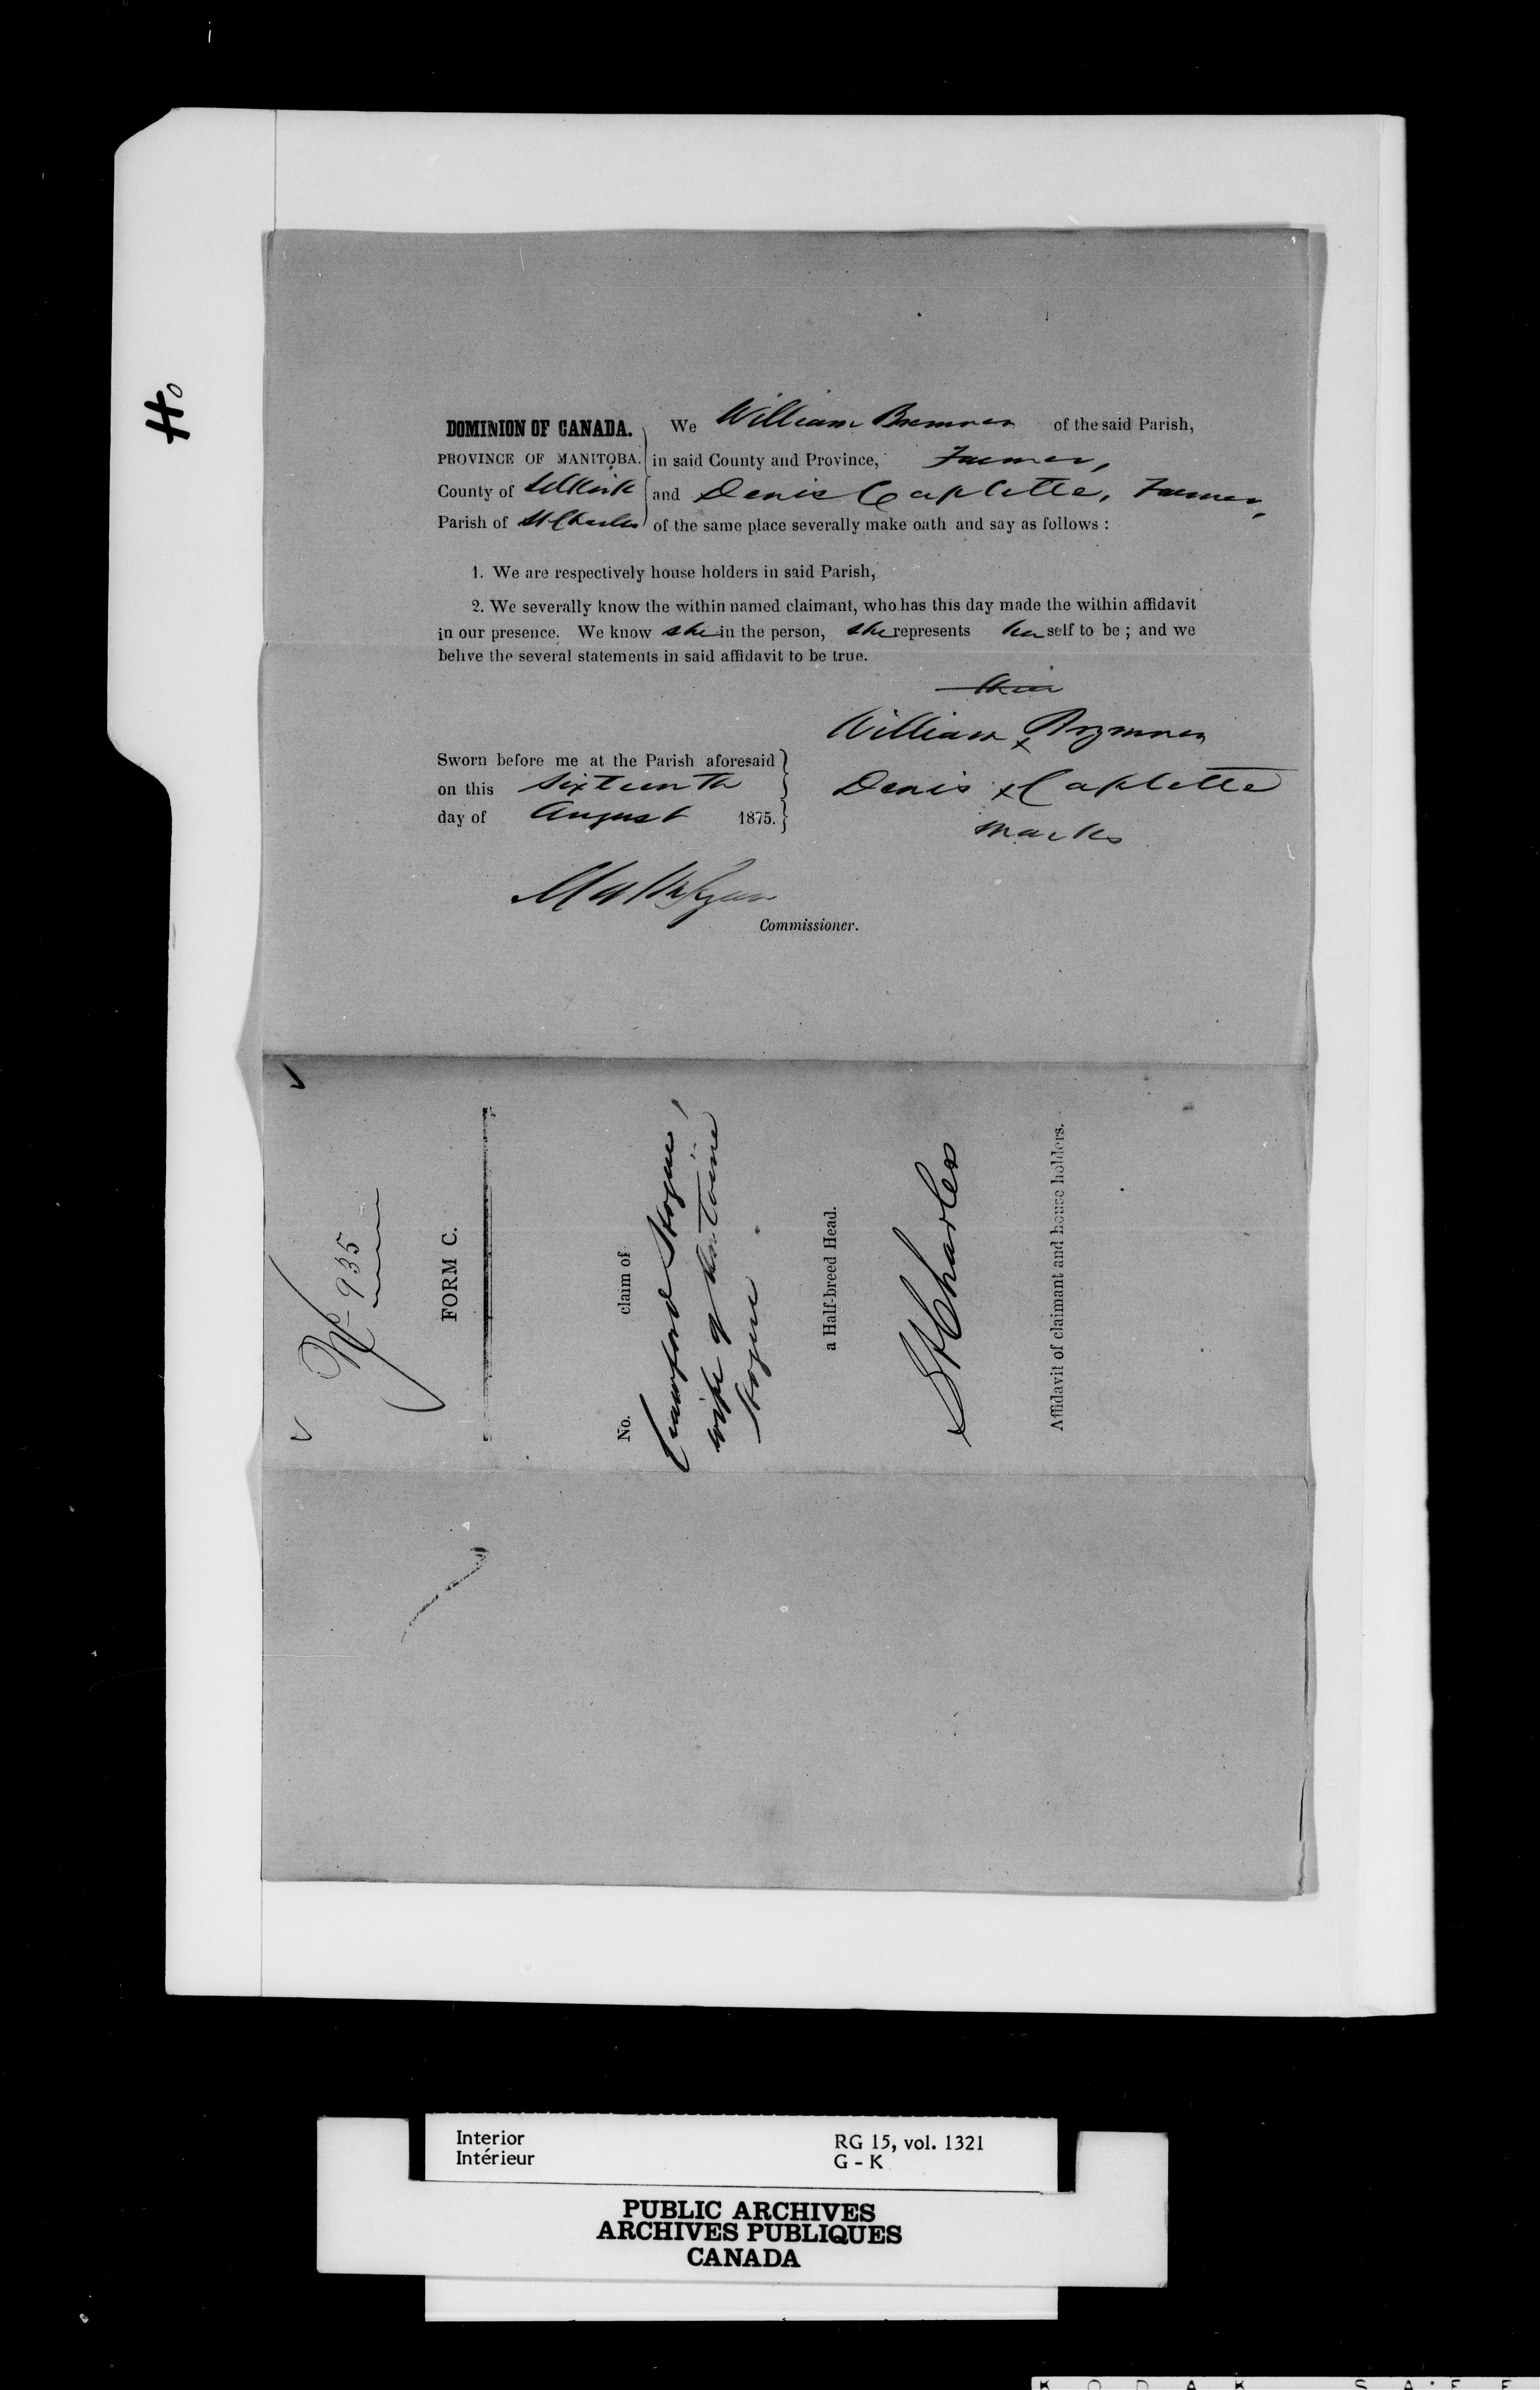 Ho
DOMINION OF CANADA. We William Bremner of the said Parish,
PROVINCE OF MANITOBA. in said County and Province, Farmer,
County of Selkirk and Denis Caplette, Farmer,
Parish of St Charles of the same place severally make oath and say as follows :
1. We are respectively house holders in said Parish,
2. We severally know the within named claimant, who has this day made the within affidavit
in our presence. We know she in the person, she represents her self to be ; and we
belive the several statements in said affidavit to be true.
their
William x Brymner
Sworn before me at the Parish aforesaid
on this Sixteenth
Denis x Caplette
day of August 1875.
marks
Commissioner.
No 935
FORM C.
No. claim of
Hogue,
wife of Antoine
Hogue
a Half-breed Head.
St Charles
Affidavit of claimant and house holders.
Interior
Intérieur
RG 15, vol. 1321
G - K
PUBLIC ARCHIVES
ARCHIVES PUBLIQUES
CANADA
K O D A K S A F E